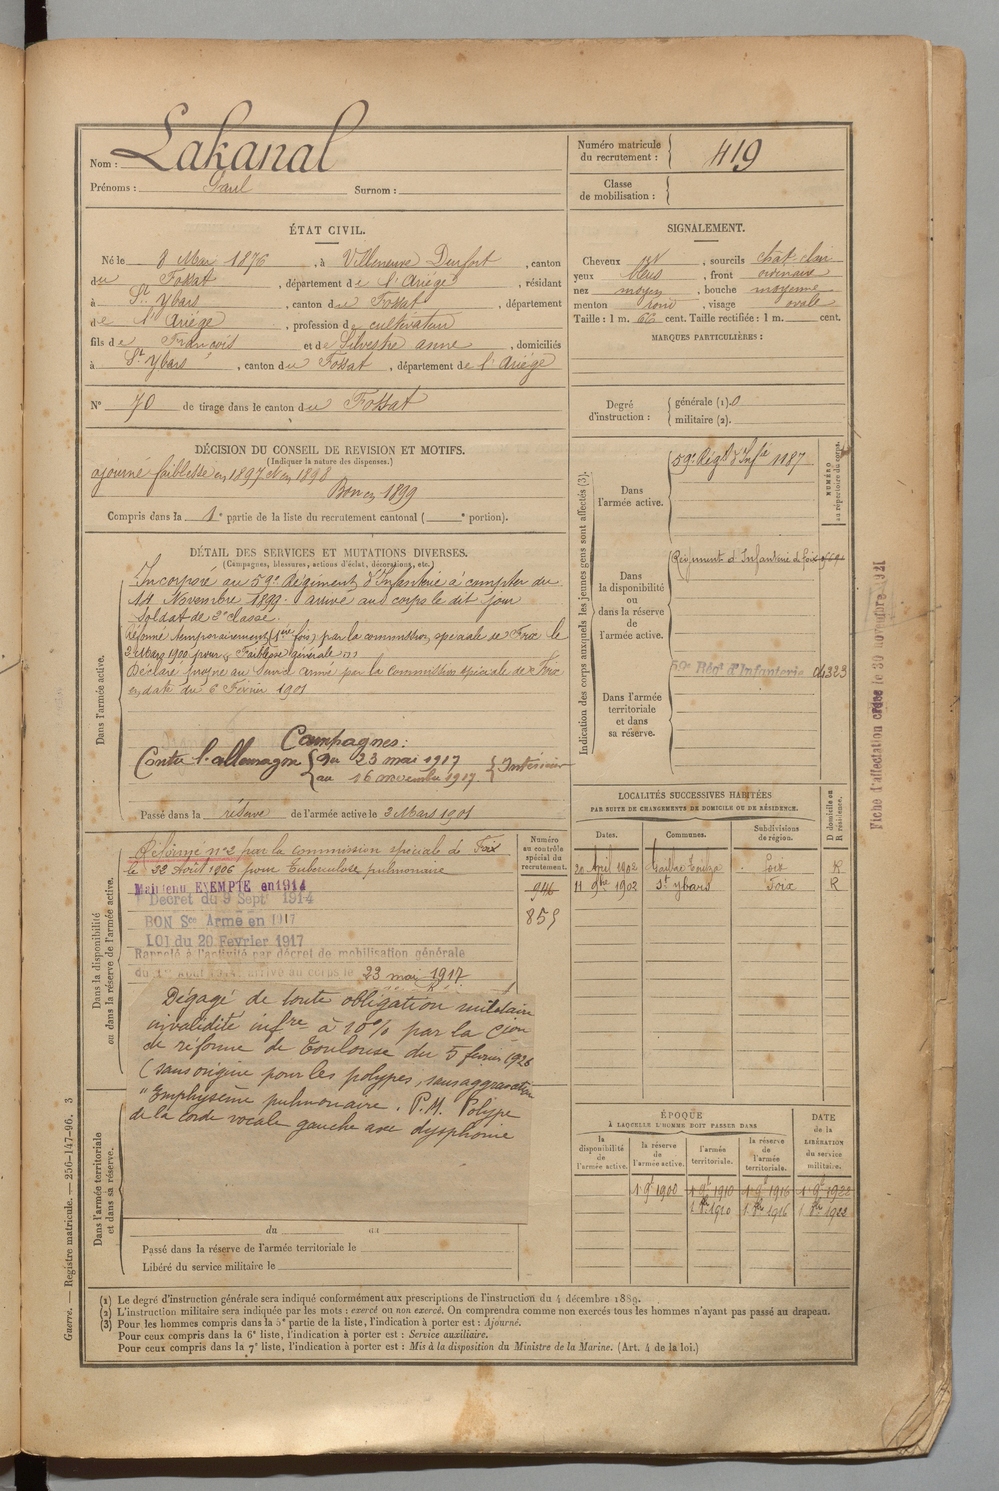 Nom : Lakanal
Prénoms : Paul Surnom :
Numéro matricule du recrutement : 419
Classe de mobilisation :
ÉTAT CIVIL.
Né le 8 Mai 1876, à Villeneuve Durfort, canton
du Fossat, département de l'Ariége, résidant
à St Ybars, canton du Fossat, département
de l'Ariége, profession de cultivateur
fils de François et de Silvestre anne, domiciliés
à St Ybars, canton du Fossat, département de l'Ariége
N° 70 de tirage dans le canton du Fossat
SIGNALEMENT.
Cheveux, sourcils chât. clair
yeux bleus, front ordinaire
nez moyen, bouche moyenne
menton rond, visage ovale
Taille : 1 m. 66 cent. Taille rectifiée : 1 m. cent.
MARQUES PARTICULIÈRES :
Degré d'instruction : générale (1). 0
militaire (2).
DÉCISION DU CONSEIL DE REVISION ET MOTIFS.
(Indiquer la nature des dispenses.)
ajourné faiblesse en 1897 et en 1898
Bon en 1899
Compris dans la 1e partie de la liste du recrutement cantonal ( e portion).
DÉTAIL DES SERVICES ET MUTATIONS DIVERSES.
(Campagnes, blessures, actions d'éclat, décorations, etc.)
Dans l'armée active.
Incorporé au 59e Régiment d'Infanterie à compter du
14 Novembre 1899. arrivé au corps le dit jour
Soldat de 2e classe.
réformé temporairement (1ère fois) par la commission spéciale de Foix le
3 Mars 1900 pour Faiblesse générale
Déclaré propre au Service armé par la commission spéciale de Foix
en date du 6 Février 1901
Campagnes :
Contre l'allemagne { du 23 mai 1917
au 16 novembre 1917. } Intérieur
Passé dans la réserve de l'armée active le 3 Mars 1901
Indication des corps auxquels les jeunes gens sont affectés (3).
NUMÉRO au répertoire du corps.
Dans l'armée active. 59e Régt d'Infie 1187
Dans la disponibilité ou dans la réserve de l'armée active. Régiment d'Infanterie de Foix
Dans l'armée territoriale et dans sa réserve. 59e Régt d'Infanterie 04323
Fiche d'affectation créée le 30 novembre 1921
Dans la disponibilité ou dans la réserve de l'armée active.
Réformé n°2 par la commission spéciale de Foix
le 22 Août 1906 pour Tuberculose pulmonaire
Maintenu EXEMPTÉ en 1914
Décret du 9 Sept 1914
BON Sce Armé en 1917
LOI du 20 Février 1917
Rappelé à l'activité par décret de mobilisation générale
du 1er Août 1914. arrivé au corps le 23 mai 1917
Dégagé de toute obligation militaire
invalidité infre à 10% par la Cion
de réforme de Toulouse du 5 février 1926
(sans origine pour les polypes, sans aggravation
"Emphysème pulmonaire. P.M. Polype
de la corde vocale gauche avec dysphonie
Numéro au contrôle spécial du recrutement.
946
855
LOCALITÉS SUCCESSIVES HABITÉES
PAR SUITE DE CHANGEMENTS DE DOMICILE OU DE RÉSIDENCE.
Dates. Communes. Subdivisions de région. D domicile ou R résidence.
20 avril 1902 Gaillac Toulza Foix R
11 9bre 1902 St Ybars Foix R
Dans l'armée territoriale et dans sa réserve.
du au
Passé dans la réserve de l'armée territoriale le
Libéré du service militaire le
ÉPOQUE
À LAQUELLE L'HOMME DOIT PASSER DANS
la disponibilité de l'armée active. la réserve de l'armée active. l'armée territoriale. la réserve de l'armée territoriale. DATE de la LIBÉRATION du service militaire.
1 9t 1900 1 9t 1910 1 9t 1916 1 9t 1922
1 8bre 1910 1 8bre 1916 1 8bre 1922
Guerre. — Registre matricule. — 256-147-96. 3
(1) Le degré d'instruction générale sera indiqué conformément aux prescriptions de l'instruction du 4 décembre 1889.
(2) L'instruction militaire sera indiquée par les mots : exercé ou non exercé. On comprendra comme non exercés tous les hommes n'ayant pas passé au drapeau.
(3) Pour les hommes compris dans la 5e partie de la liste, l'indication à porter est : Ajourné.
Pour ceux compris dans la 6e liste, l'indication à porter est : Service auxiliaire.
Pour ceux compris dans la 7e liste, l'indication à porter est : Mis à la disposition du Ministre de la Marine. (Art. 4 de la loi.)